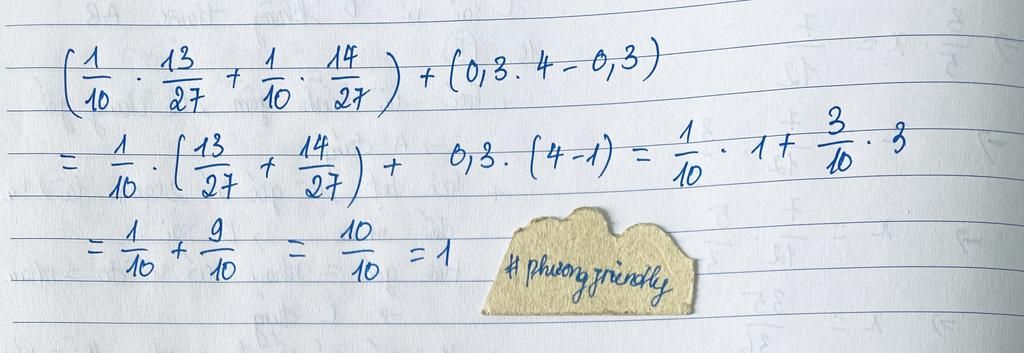 (1/10 . 13/27 + 1/10 . 14/27) + (0,3 . 4 - 0,3)
= 1/10 . (13/27 + 14/27) + 0,3 . (4-1) = 1/10 . 1 + 3/10 . 3
= 1/10 + 9/10 = 10/10 = 1
# phuongfriendly